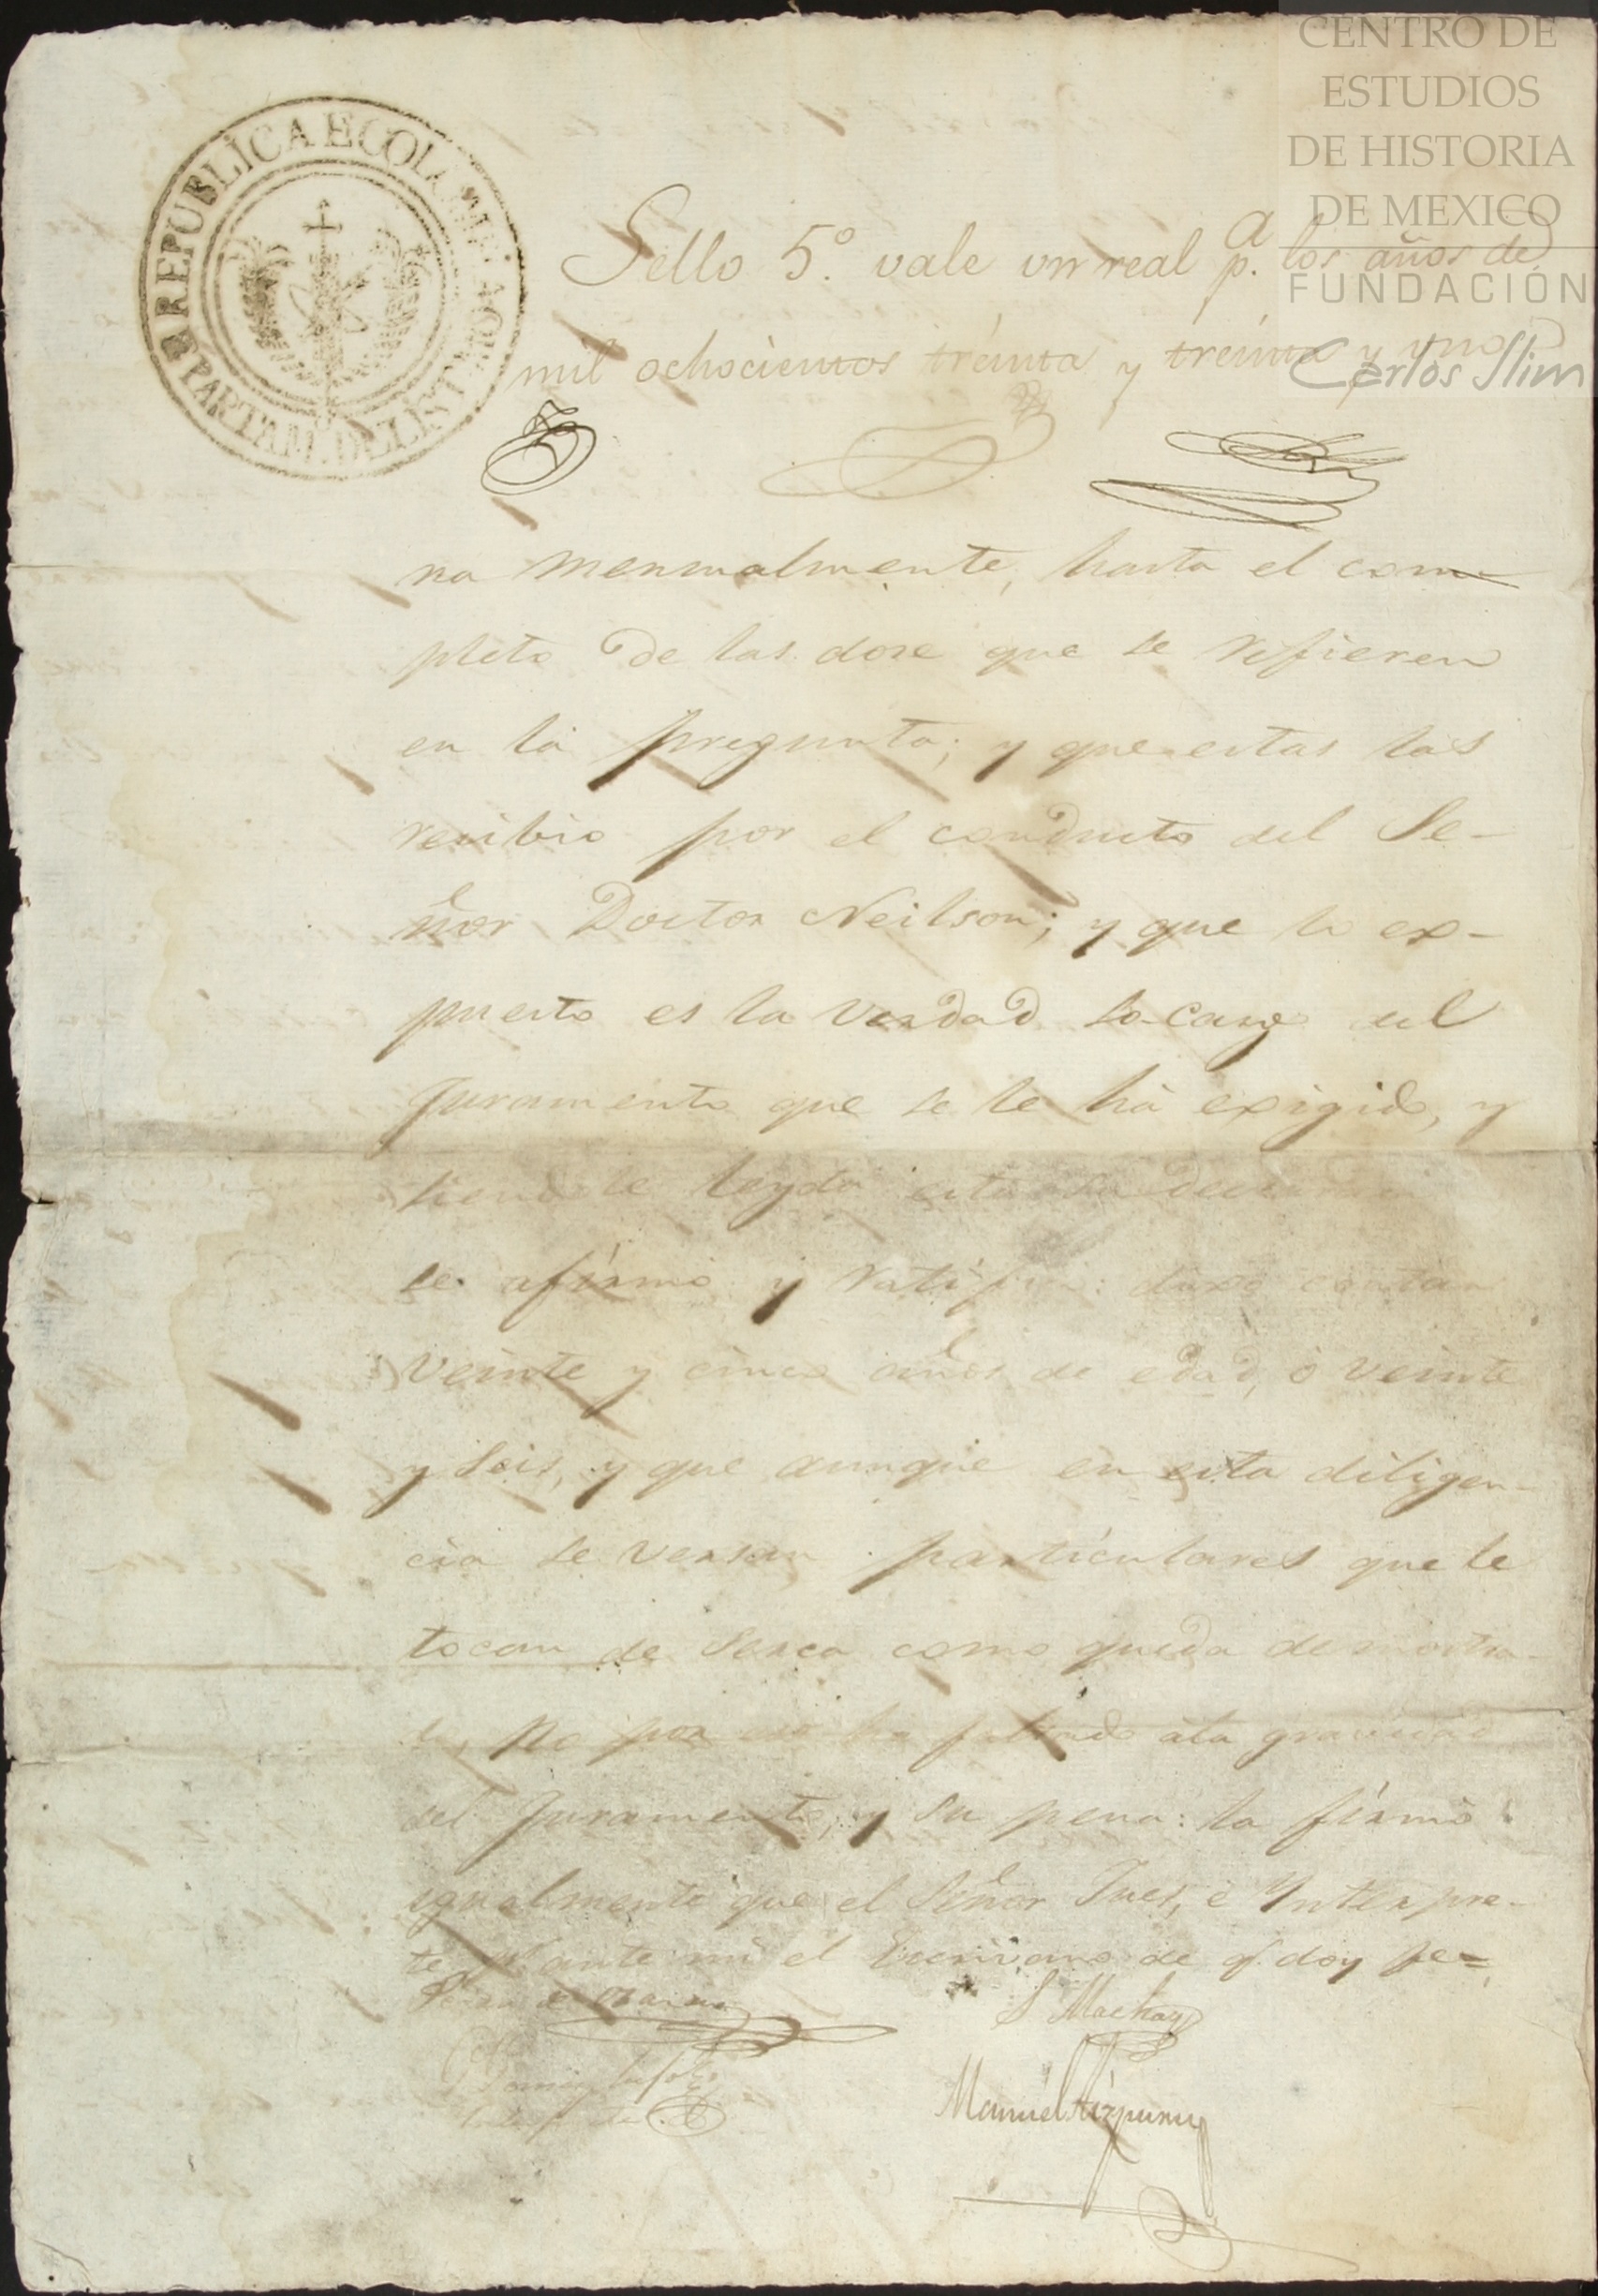 CENTRO DE
ESTUDIOS
DE HISTORIA
DE MEXICO
FUNDACIÓN
Carlos Slim
REPUBLICA
Sello 5º. vale un real p.ª los años de
mil ochocientos treinta y treinta y uno
na mensualmente, hasta el com-
pleto de las dose que se refieren
en la pregunta; y que estas las
recibio por el conducto del Se-
ñor Doctor Neilson; y que lo ex-
puesto es la verdad so-cargo del
Juramento que se le há exigido, y
siendole leyda esta su
se afirmó y ratificó: dixo contar
veinte y cinco años de edad, ó veinte
y seis, y que aunque en esta diligen-
cia se versan particulares que le
tocan de serca como queda demostra-
do, no por eso ha faltado ala gravedad
del Juramento, y su pena: la firmó
igualmente que el Señor Jues, é Ynterpre-
te ante mi el Escrivano de q. doy fe=
S Mackay
Manuel Aizpuru